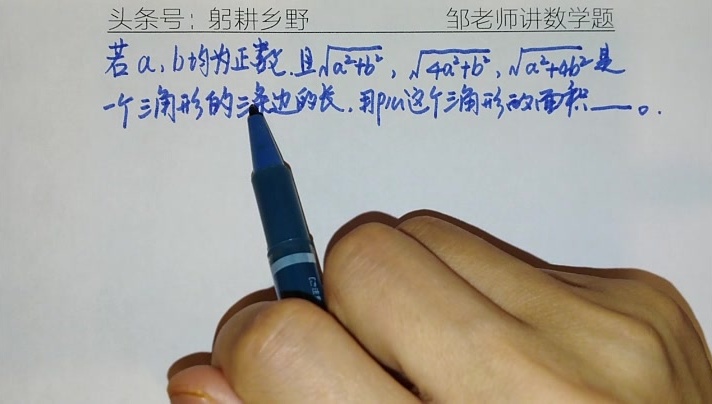 头条号：躬耕乡野 邹老师讲数学题
若a,b均为正数,且√(a²+b²),√(4a²+b²),√(a²+4b²)是
一个三角形的三条边的长,那么这个三角形的面积——。